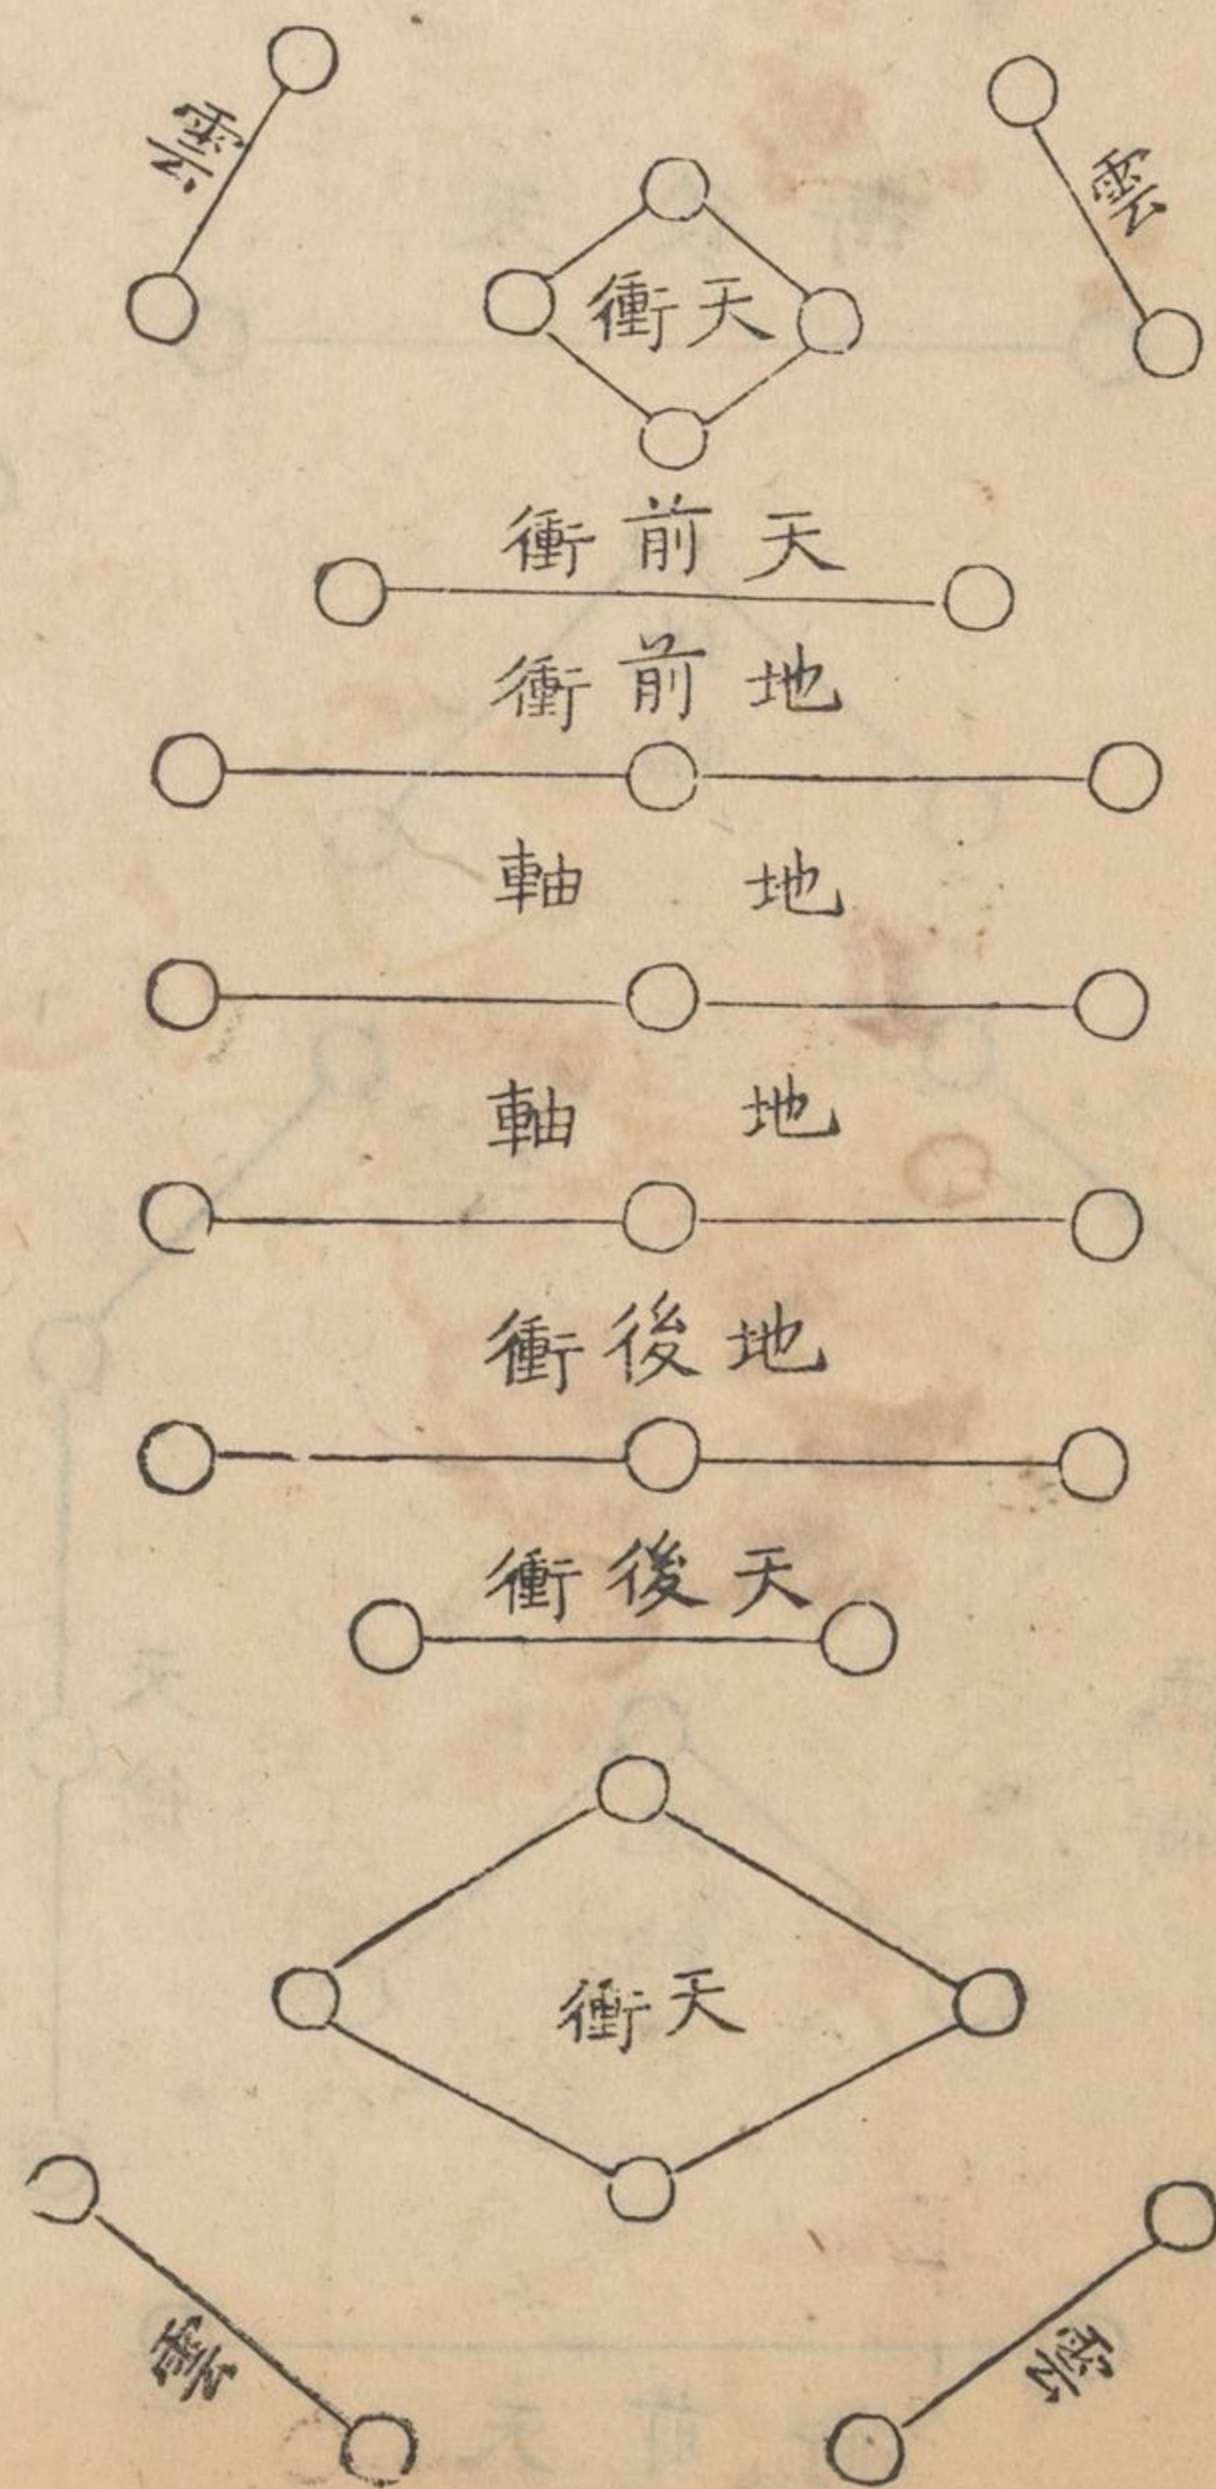 雲
雲
天衝
天前衝
地前衝
地軸
地軸
地後衝
天後衝
天衝
雲
雲